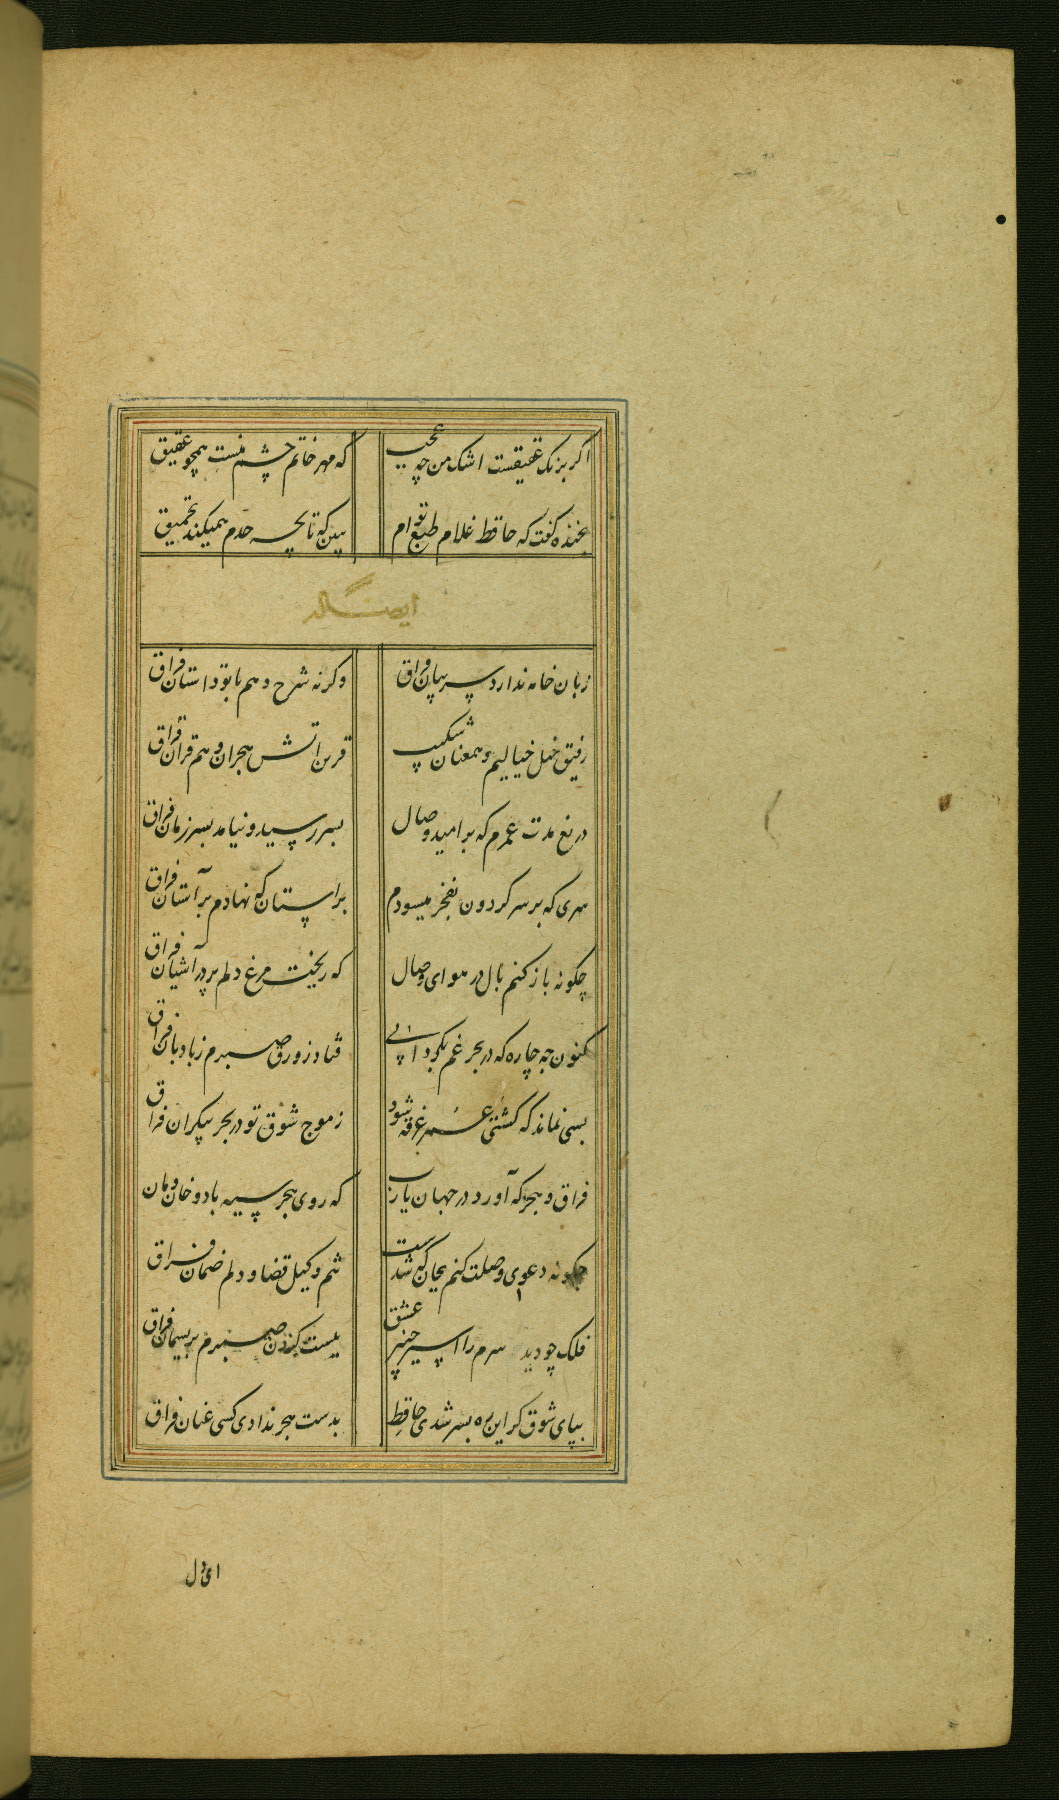 اکر برنک عقیقست اشک من چه عجب
که مهر خاتم چشم منست همچو عقیق
بخنده کفت که حافظ غلام طبع توام
ببین که تا بچه حدم همیکند تحمیق
ایضاً له
زبان خامه ندارد سر بیان فراق
وکرنه شرح دهم با تو داستان فراق
رفیق خیل خیالیم و همعنان شکیب
قرین اتش هجران و هم قران فراق
دریغ مدت عمرم که بر امید وصال
بسر رسید و نیامد بسر زمان فراق
سری که بر سر کردون بفخر میسودم
براستان که نهادم بر آستان فراق
چکونه باز کنم بال در هوای وصال
که ریخت مرغ دلم پر در آشیان فراق
کنون چه چاره که در بحر غم بکردابی
فتاد زورق صبرم ز بادبان فراق
بسی نماند که کشتی عمر غرقه شود
ز موج شوق تو در بحر بیکران فراق
فراق و هجر که آورد در جهان یارب
که روی هجر سیه باد و خان و مان
چکونه دعوی وصلت کنم بجان که شدست
تنم وکیل قضا و دلم ضمان فراق
فلک چو دید سرم را اسیر چنبر عشق
ببست کردن صبرم بریسمان فراق
بپای شوق کر این ره بسر شدی حافظ
بدست هجر ندادی کسی عنان فراق
ای دل